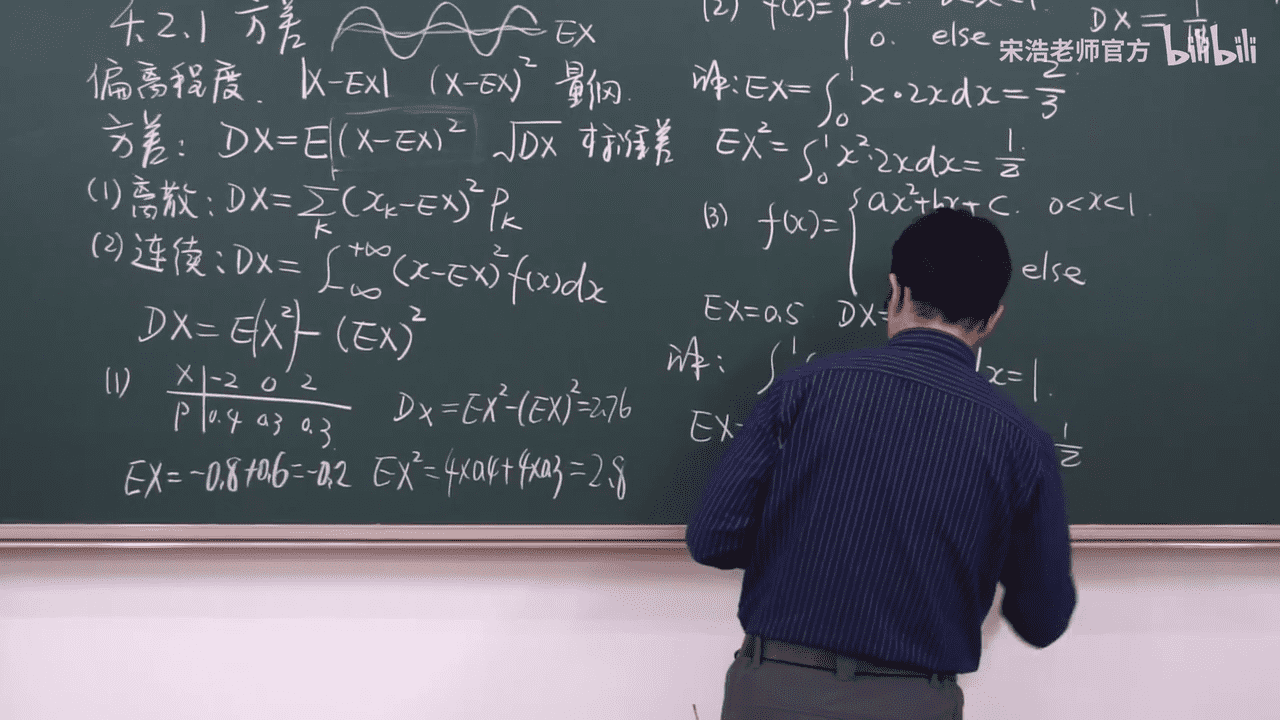 4.2.1 方差 EX
偏离程度. |X-EX| (X-EX)² 量纲.
方差: DX=E[(X-EX)² √DX 标准差
(1) 离散: DX=∑(x_k-EX)² P_k
k
(2) 连续: DX=∫_{-∞}^{+∞}(x-EX)² f(x)dx
DX=E(X²)-(EX)²
(1) X -2 0 2
P 0.4 0.3 0.3
DX=EX²-(EX)²=2.76
EX=-0.8+0.6=-0.2 EX²=4×0.4+4×0.3=2.8
(2) f(x)={
0. else
DX=
宋浩老师官方 bilibili
解: EX=∫_0^1 x·2xdx=2/3
EX²=∫_0^1 x²·2xdx=1/2
(3) f(x)={ax²+bx+c. 0<x<1.
else
EX=0.5 DX=
解: ∫ x=1.
EX 1/2